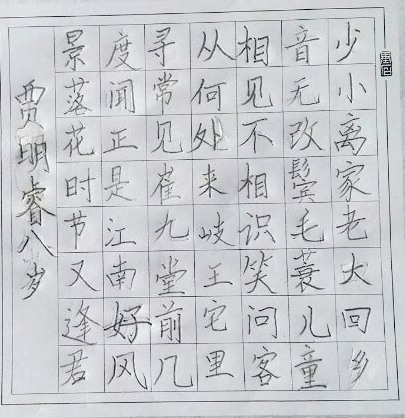 少小离家老大回乡
音无改鬓毛蓑儿童
相见不相识笑问客
从何处来岐王它里
寻常见崔九堂前几
度闻正是江南好风
景落花时节又逢君
贾明睿八岁